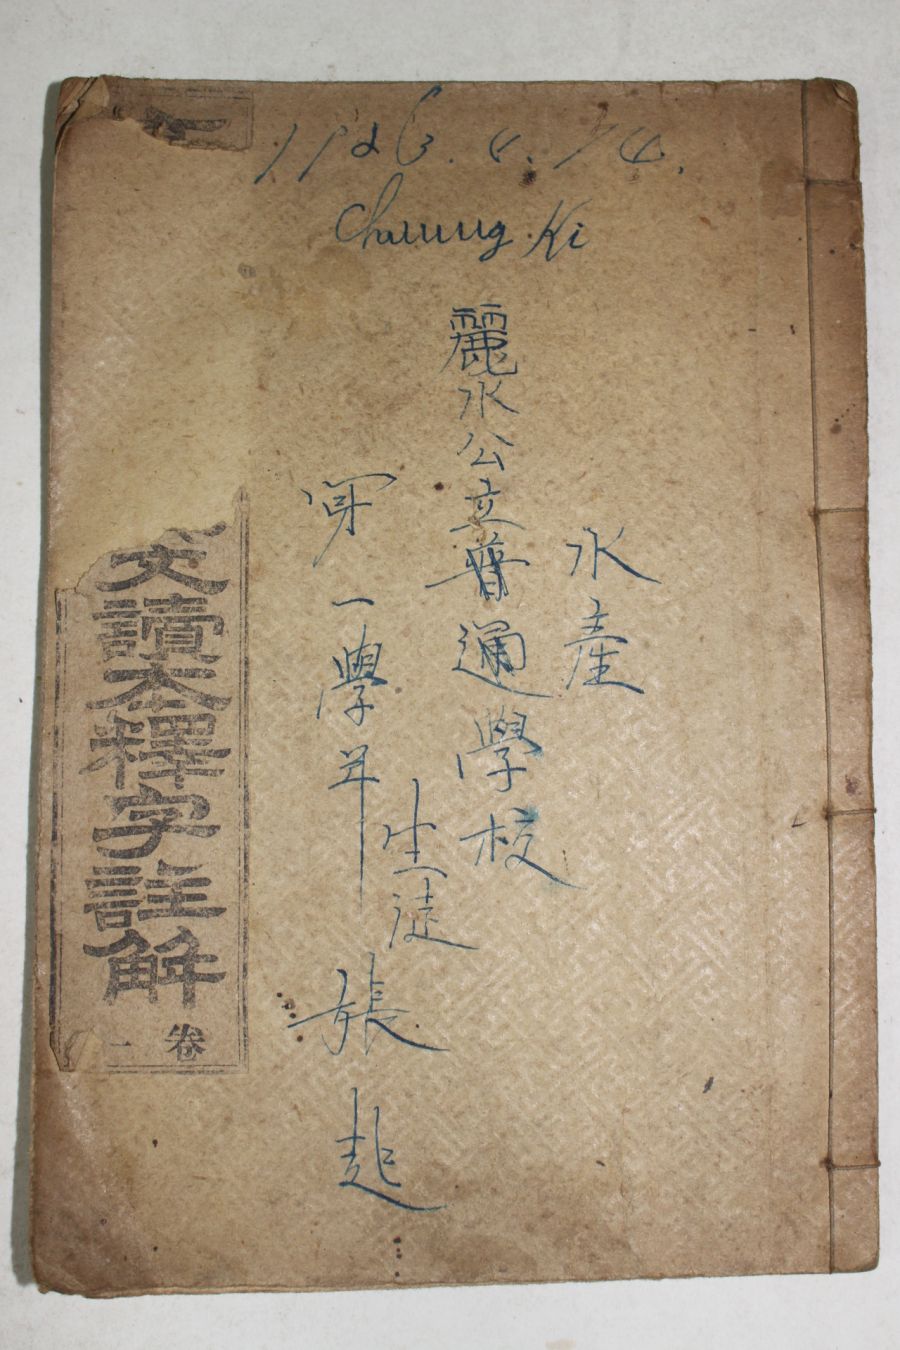 1926. 4. 14.
Chaung Ki
水產
麗水公立普通學校
生徒
第一學年
張起
文讀本釋字註解
卷一